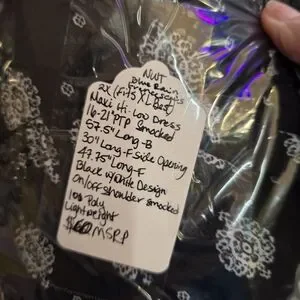 NWT
Blue Rain
Francesca's
2X (Fits XL Best)
Maxi Hi-Low Dress
16-21" PTP Smocked
57.5" Long-B
30" Long-F side Opening
47.75" Long-F
Black w/White Design
on/off shoulder smocked
100 Poly
Lightweight
MSRP